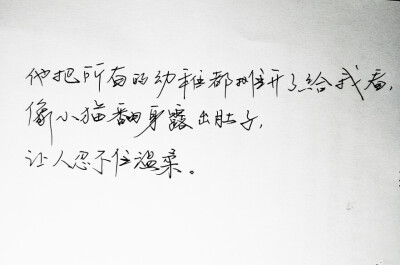 他把所有的幼稚都摊开了给我看,
像小猫翻身露出肚子,
让人忍不住温柔。